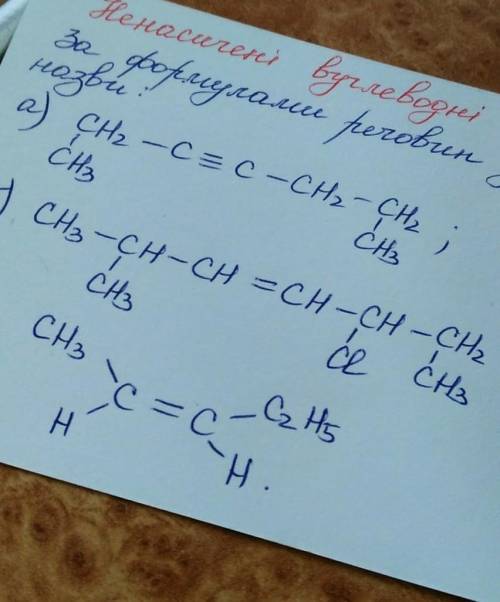 Ненасичені вуглеводні
За формулами речовин
назви:
а) CH₂ – C ≡ C – CH₂ – CH₂ ;
CH₃ CH₃
CH₃ – CH – CH = CH – CH – CH₂
CH₃ Cl CH₃
CH₃
C = C – C₂H₅
H H .